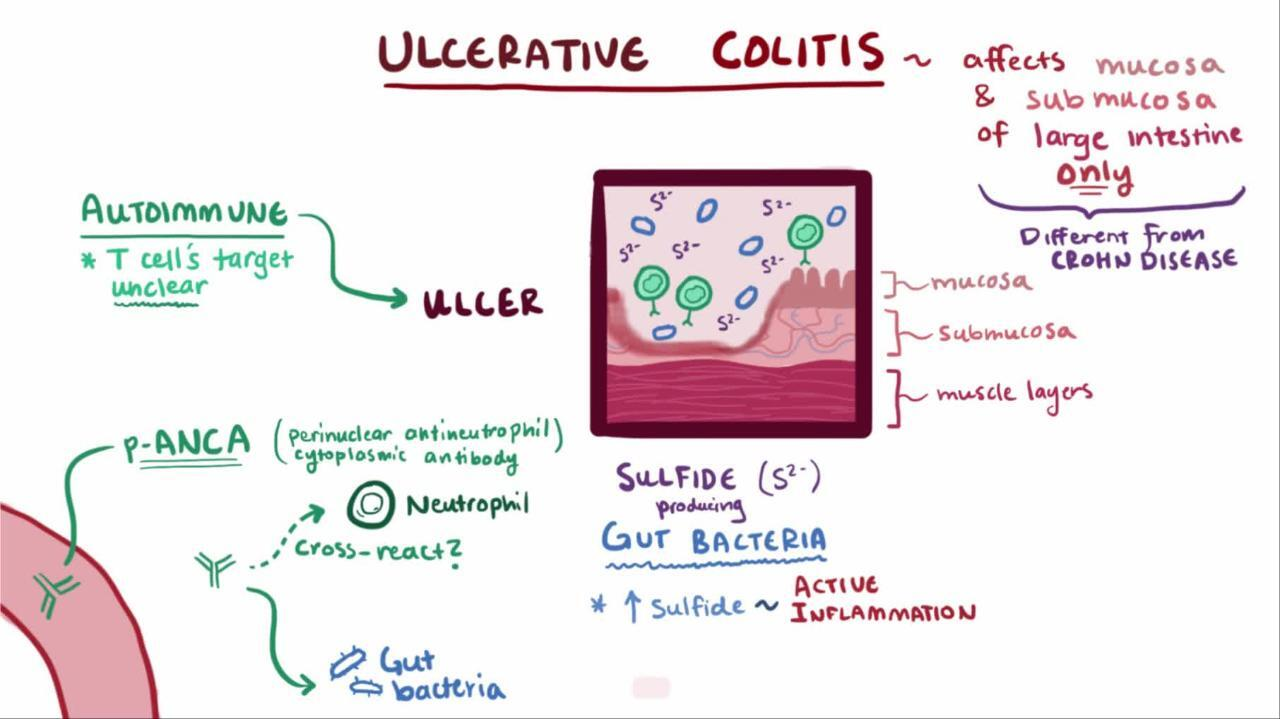 ULCERATIVE COLITIS ~ affects mucosa
& submucosa
of large intestine
only
Different from
CROHN DISEASE
AUTOIMMUNE
* T cell's target
unclear
ULCER
S²⁻
S²⁻
S²⁻
S²⁻
S²⁻
S²⁻
mucosa
submucosa
muscle layers
p-ANCA (perinuclear antineutrophil
cytoplasmic antibody)
Neutrophil
cross-react?
Gut
bacteria
SULFIDE (S²⁻)
producing
GUT BACTERIA
* ↑ Sulfide ~ ACTIVE
INFLAMMATION